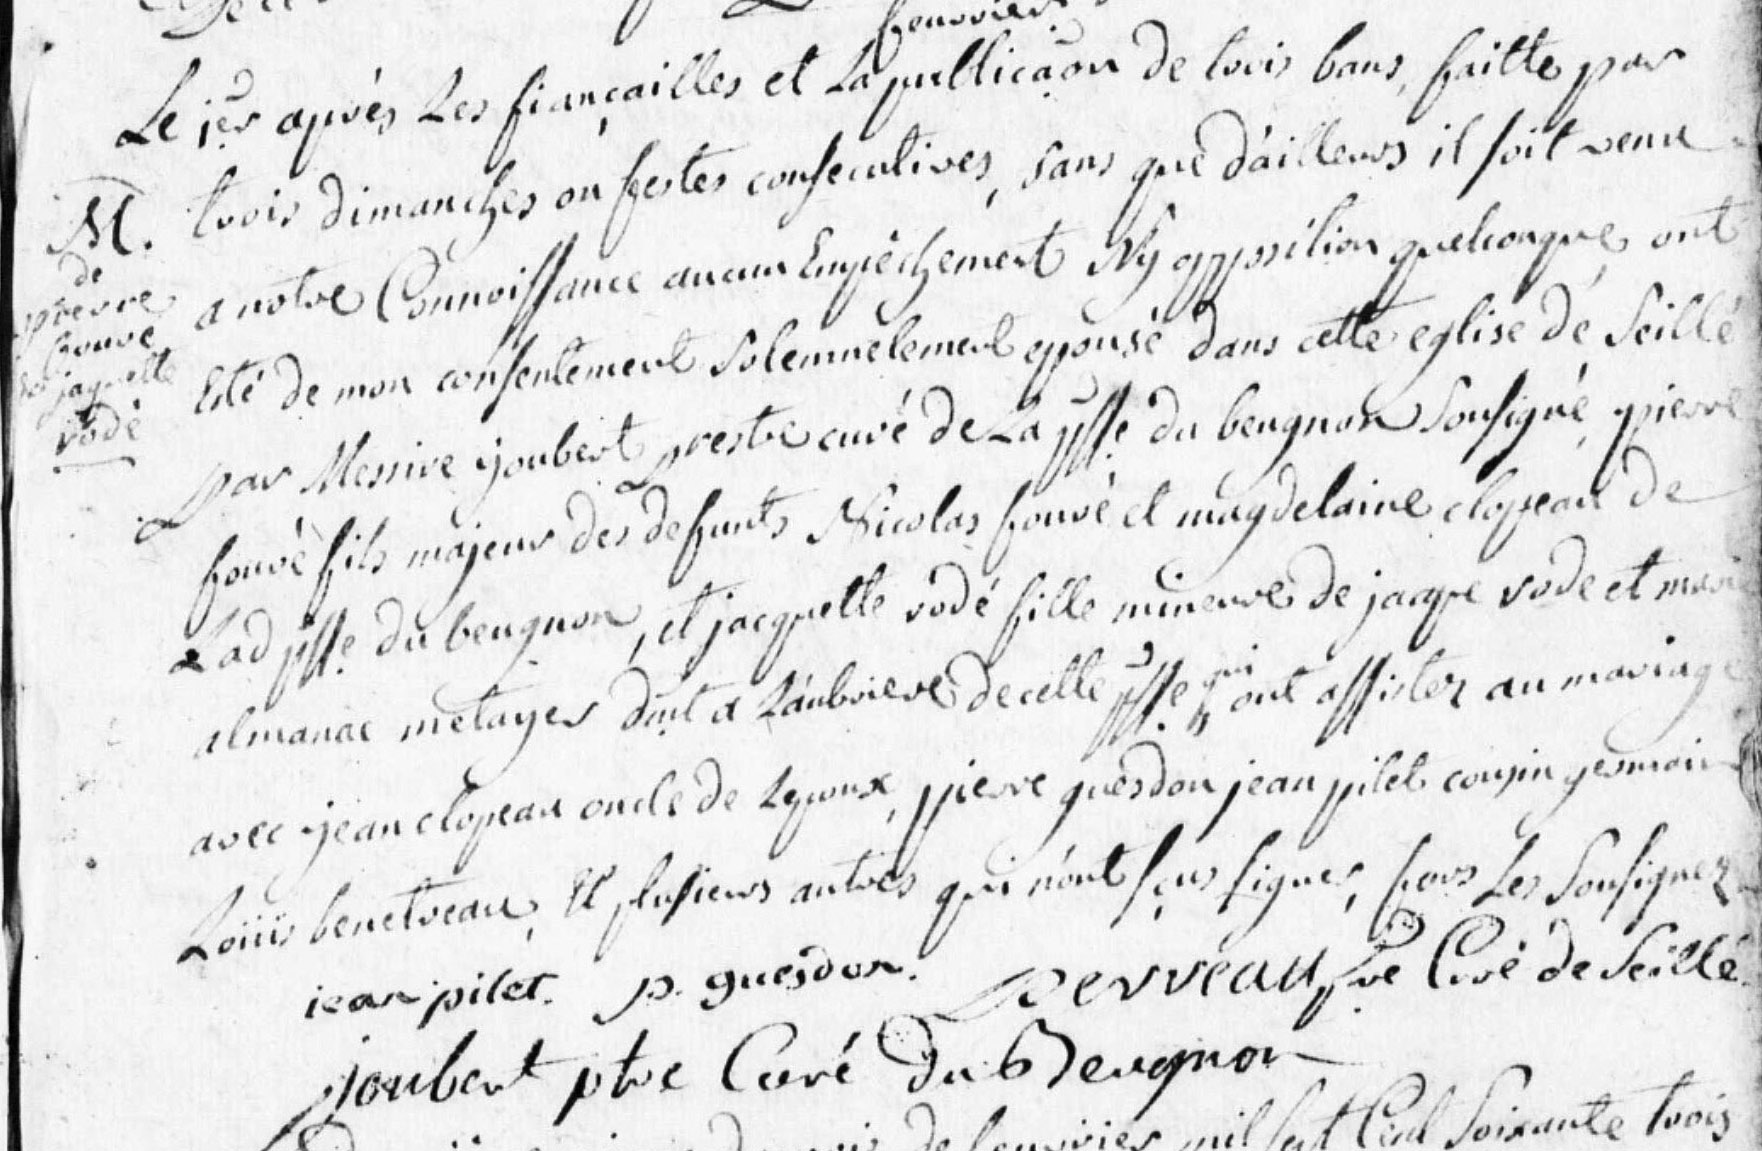 feuvrier
Le 1er aprés Les fiançailles et La publicaõn de trois bans, faitte par
M. trois dimanches ou festes consecutives, sans que d'ailleurs il soit venu
de
pierre
fouré
et jaquette
rodé
a notre Connoissance aucun Empéchement Ny opposition quelconque, ont
Eté de mon consentement Solemnelement epousé dans cette eglise de Seillé
par Messire joubert prestre curé de La psse du beugnon Sousigné, pierre
fouré fils majeur des defunts Nicolas fouré et magdelaine clopeau de
Lad psse du beugnon, et jacquette rodé fille mineure de jacque rode et marie
almanac metayer dmt a L'aubriere de cette psse qui ont assister au mariage
avec jean clopeau oncle de Lepoux, pierre guesdon jean pilet cousin germain
Loüis benetreau, Et plusieurs autres qui n'ont sçus signer, fors Les Sousignez
jean pilet. p. guesdon. perreau Ptre Curé de Seillé
joubert ptre Curé du Beugnon
de feuvrier mil sept Cent Soixante trois